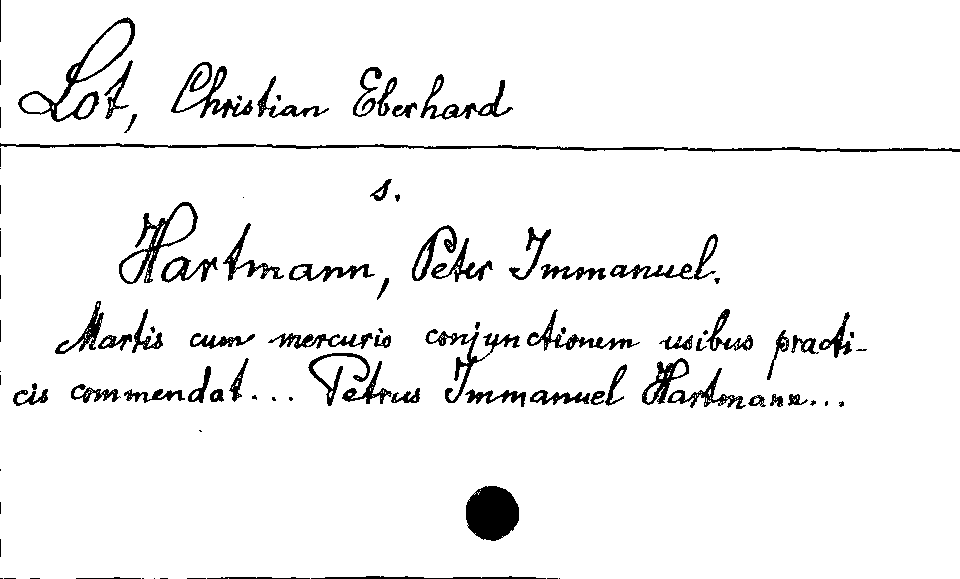 Lot, Christian Eberhard
s.
Hartmann, Peter Immanuel.
Martis cum mercurio conjunctionem usibus practi-
cis commendat... Petrus Immanuel Hartmann...